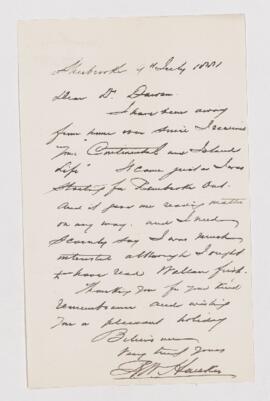 Sherbrooke 4th July 1881
Dear Dr. Dawson
I have been away
from home ever since I received
your "Continental and Island
Life" It came just as I was
starting for Pembroke and
and it gave me reading matter
on my way. and I need
scarcely say I was much
interested although I ought
to have read Wallace first.
Thanking you for your kind
remembrance and wishing
you a pleasant holiday
Believe me
Very truly yours